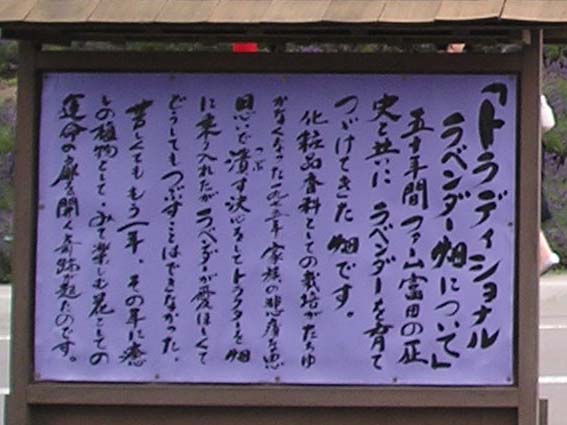 「トラディショナル
ラベンダー畑について」
五十年間ファーム富田の歴
史と共にラベンダーを育て
つづけてきた畑です。
化粧品香料としての栽培がたちゆ
かなくなった一九七三年、家族の悲痛な
思いで潰す決心をしてトラクターを畑
つぶ
に乗り入れたがラベンダーが愛ほしくて
どうしてもつぶすことはできなかった。
苦しくてももう一年、その年に癒
しの植物として、みて楽しむ花としての
運命の扉を開く奇跡が起たのです。